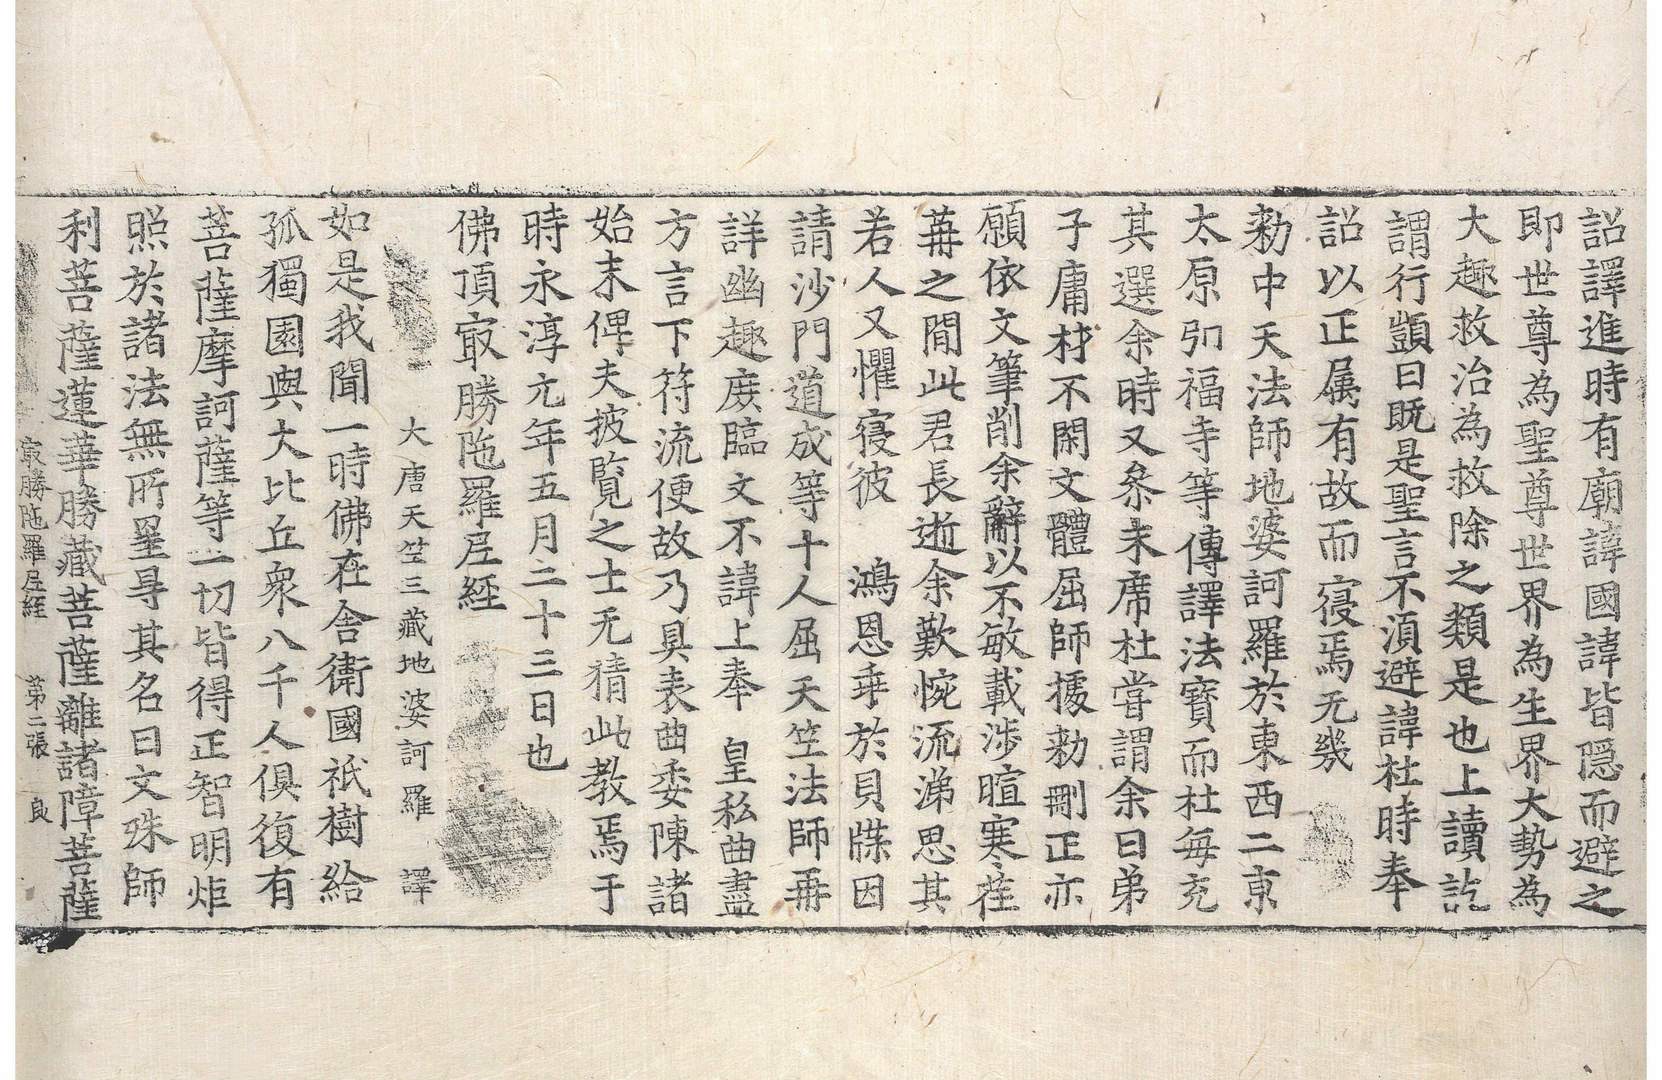 詔譯進時有廟諱國諱皆隠而避之
即世尊為聖尊世界為生界大勢為
大趣救治為救除之類是也上讀訖
謂行顗曰旣是聖言不湏避諱杜時奉
詔以正属有故而寑焉无幾
勑中天法師地婆訶羅於東西二京
太原弘福寺等傳譯法寶而杜每充
其選余時又叅末席杜嘗謂余曰弟
子庸材不閑文體屈師據勑刪正亦
願依文筆削余辭以不敏載涉暄寒荏
苒之間此君長逝余歎惋流涕思其
若人又懼寑彼　鴻恩乗於貝牒因
請沙門道成等十人屈天竺法師再
詳幽趣庻臨文不諱上奉　皇私曲盡
方言下符流便故乃具表曲委陳諸
始末俾夫披覧之士无猜此教焉于
時永淳元年五月二十三日也
佛頂㝡勝陁羅尼經
大唐天竺三藏地婆訶羅　譯
如是我聞一時佛在舍衛國祇樹給
孤獨園與大比丘衆八千人俱復有
菩薩摩訶薩等一切皆得正智明炬
照於諸法無所罣㝵其名曰文殊師
利菩薩蓮華勝藏菩薩離諸障菩薩
㝡勝陁羅尼經　苐二張　良